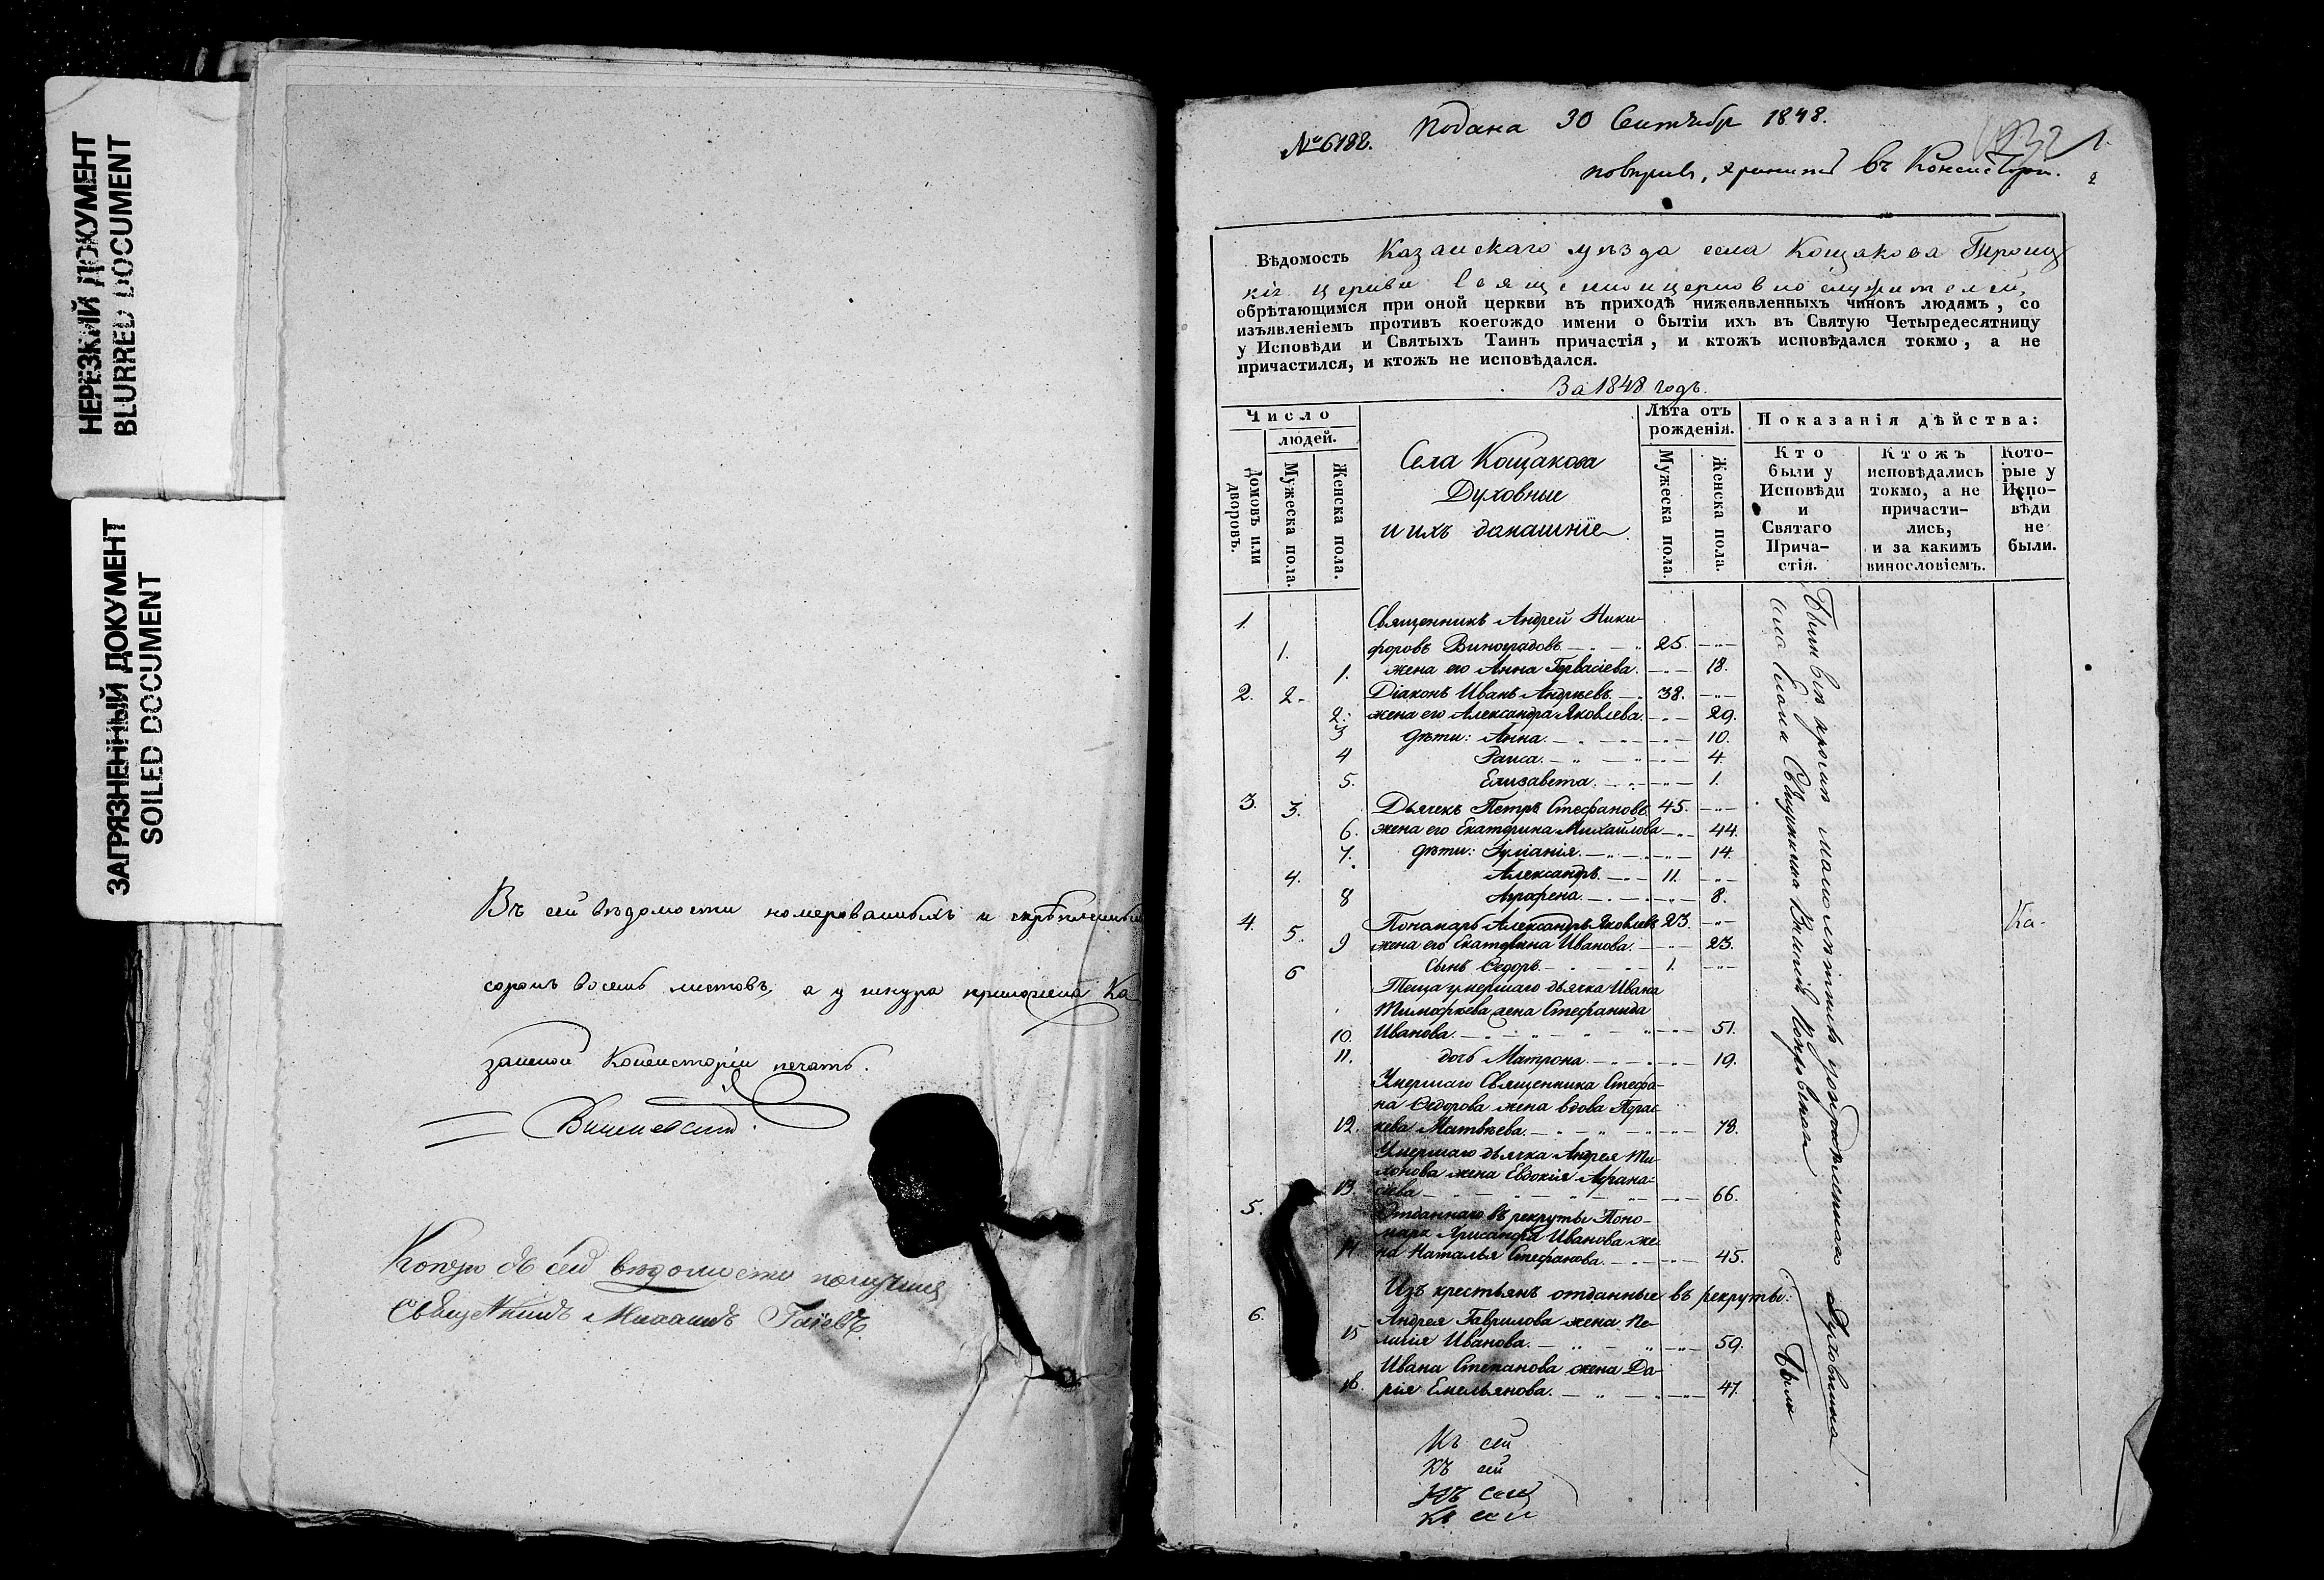 НЕРЕЗКИЙ ДОКУМЕНТ
BLURRED DOCUMENT
ЗАГРЯЗНЕННЫЙ ДОКУМЕНТ
SOILED DOCUMENT
Въ сей вѣдомости номерованныхъ и скрѣпленныхъ
сорокъ восемь листовъ, а у шнура приложена Ка
занской Консисторіи печать.
Копію съ сей вѣдомости получилъ
Священникъ Михаилъ
№ 6182. Подана 30 Сентябр 1848.
въ Консисторіи.
Вѣдомость Казанскаго уѣзда села Кощакова Троиц
кія церкви Священноцерковнослужителей,
обрѣтающимся при оной церкви въ приходѣ нижеявленныхъ чиновъ людямъ, со
изъявленіемъ противъ коегождо имени о бытіи ихъ въ Святую Четыредесятницу
у Исповѣди и Святыхъ Таинъ причастія, и ктожъ исповѣдался токмо, а не
причастился, и ктожъ не исповѣдался.
За 1848 годъ.
Число
людей.
Домовъ или дворовъ.
Мужеска пола.
Женска пола.
Села Кощакова
Духовные
и ихъ домашніе
Лѣта отъ рожденія.
Мужеска пола.
Женска пола.
Показанія дѣйства:
Кто были у Исповѣди и Святаго Прича- стія.
Ктожъ исповѣдались токмо, а не причасти- лись, и за какимъ винословіемъ.
Кото- рые у Испо- вѣди не были.
1. Священникъ Андрей Ники-
1. форовъ Виноградовъ 25.
1. жена его Анна Гервасіева 18.
2. 2. Діаконъ Иванъ Андреевъ 38.
2. жена его Александра Яковлева 29.
3 дѣти: Анна 10.
4 Раиса 4.
5. Елизавета 1.
3. 3. Дьячекъ Петръ Стефановъ 45.
6. жена его Екатерина Михайлова 44.
7. дѣти: Іуліанія 14.
4. Александръ 11.
8 Агрофена 8.
4. 5. Пономарь Александръ Яковлевъ 23.
9 жена его Екатерина Иванова 23.
6 сынъ Ѳедоръ 1.
Теща умершаго дьячка Ивана
Тимофеева жена Стефанида
10. Иванова 51.
11. дочь Матрона 19.
Умершаго Священника Стефа-
на Ѳедорова жена вдова Парас
12. кева Матвѣева 78.
Умершаго дьячка Андрея Ти-
хонова жена Евдокія Афана-
13 сіева 66.
5. Отданнаго въ рекруты Поно-
маря Хрисанфа Иванова же
14 на Наталья Стефанова 45.
Изъ крестьянъ отданные въ рекруты:
6. Андрея Гаврилова жена Пе-
15 лагія Иванова 59.
Ивана Степанова жена Да-
16. рія Емельянова 47.
Были
Ка-
Къ сей
Къ сей
Къ сей
Къ сей